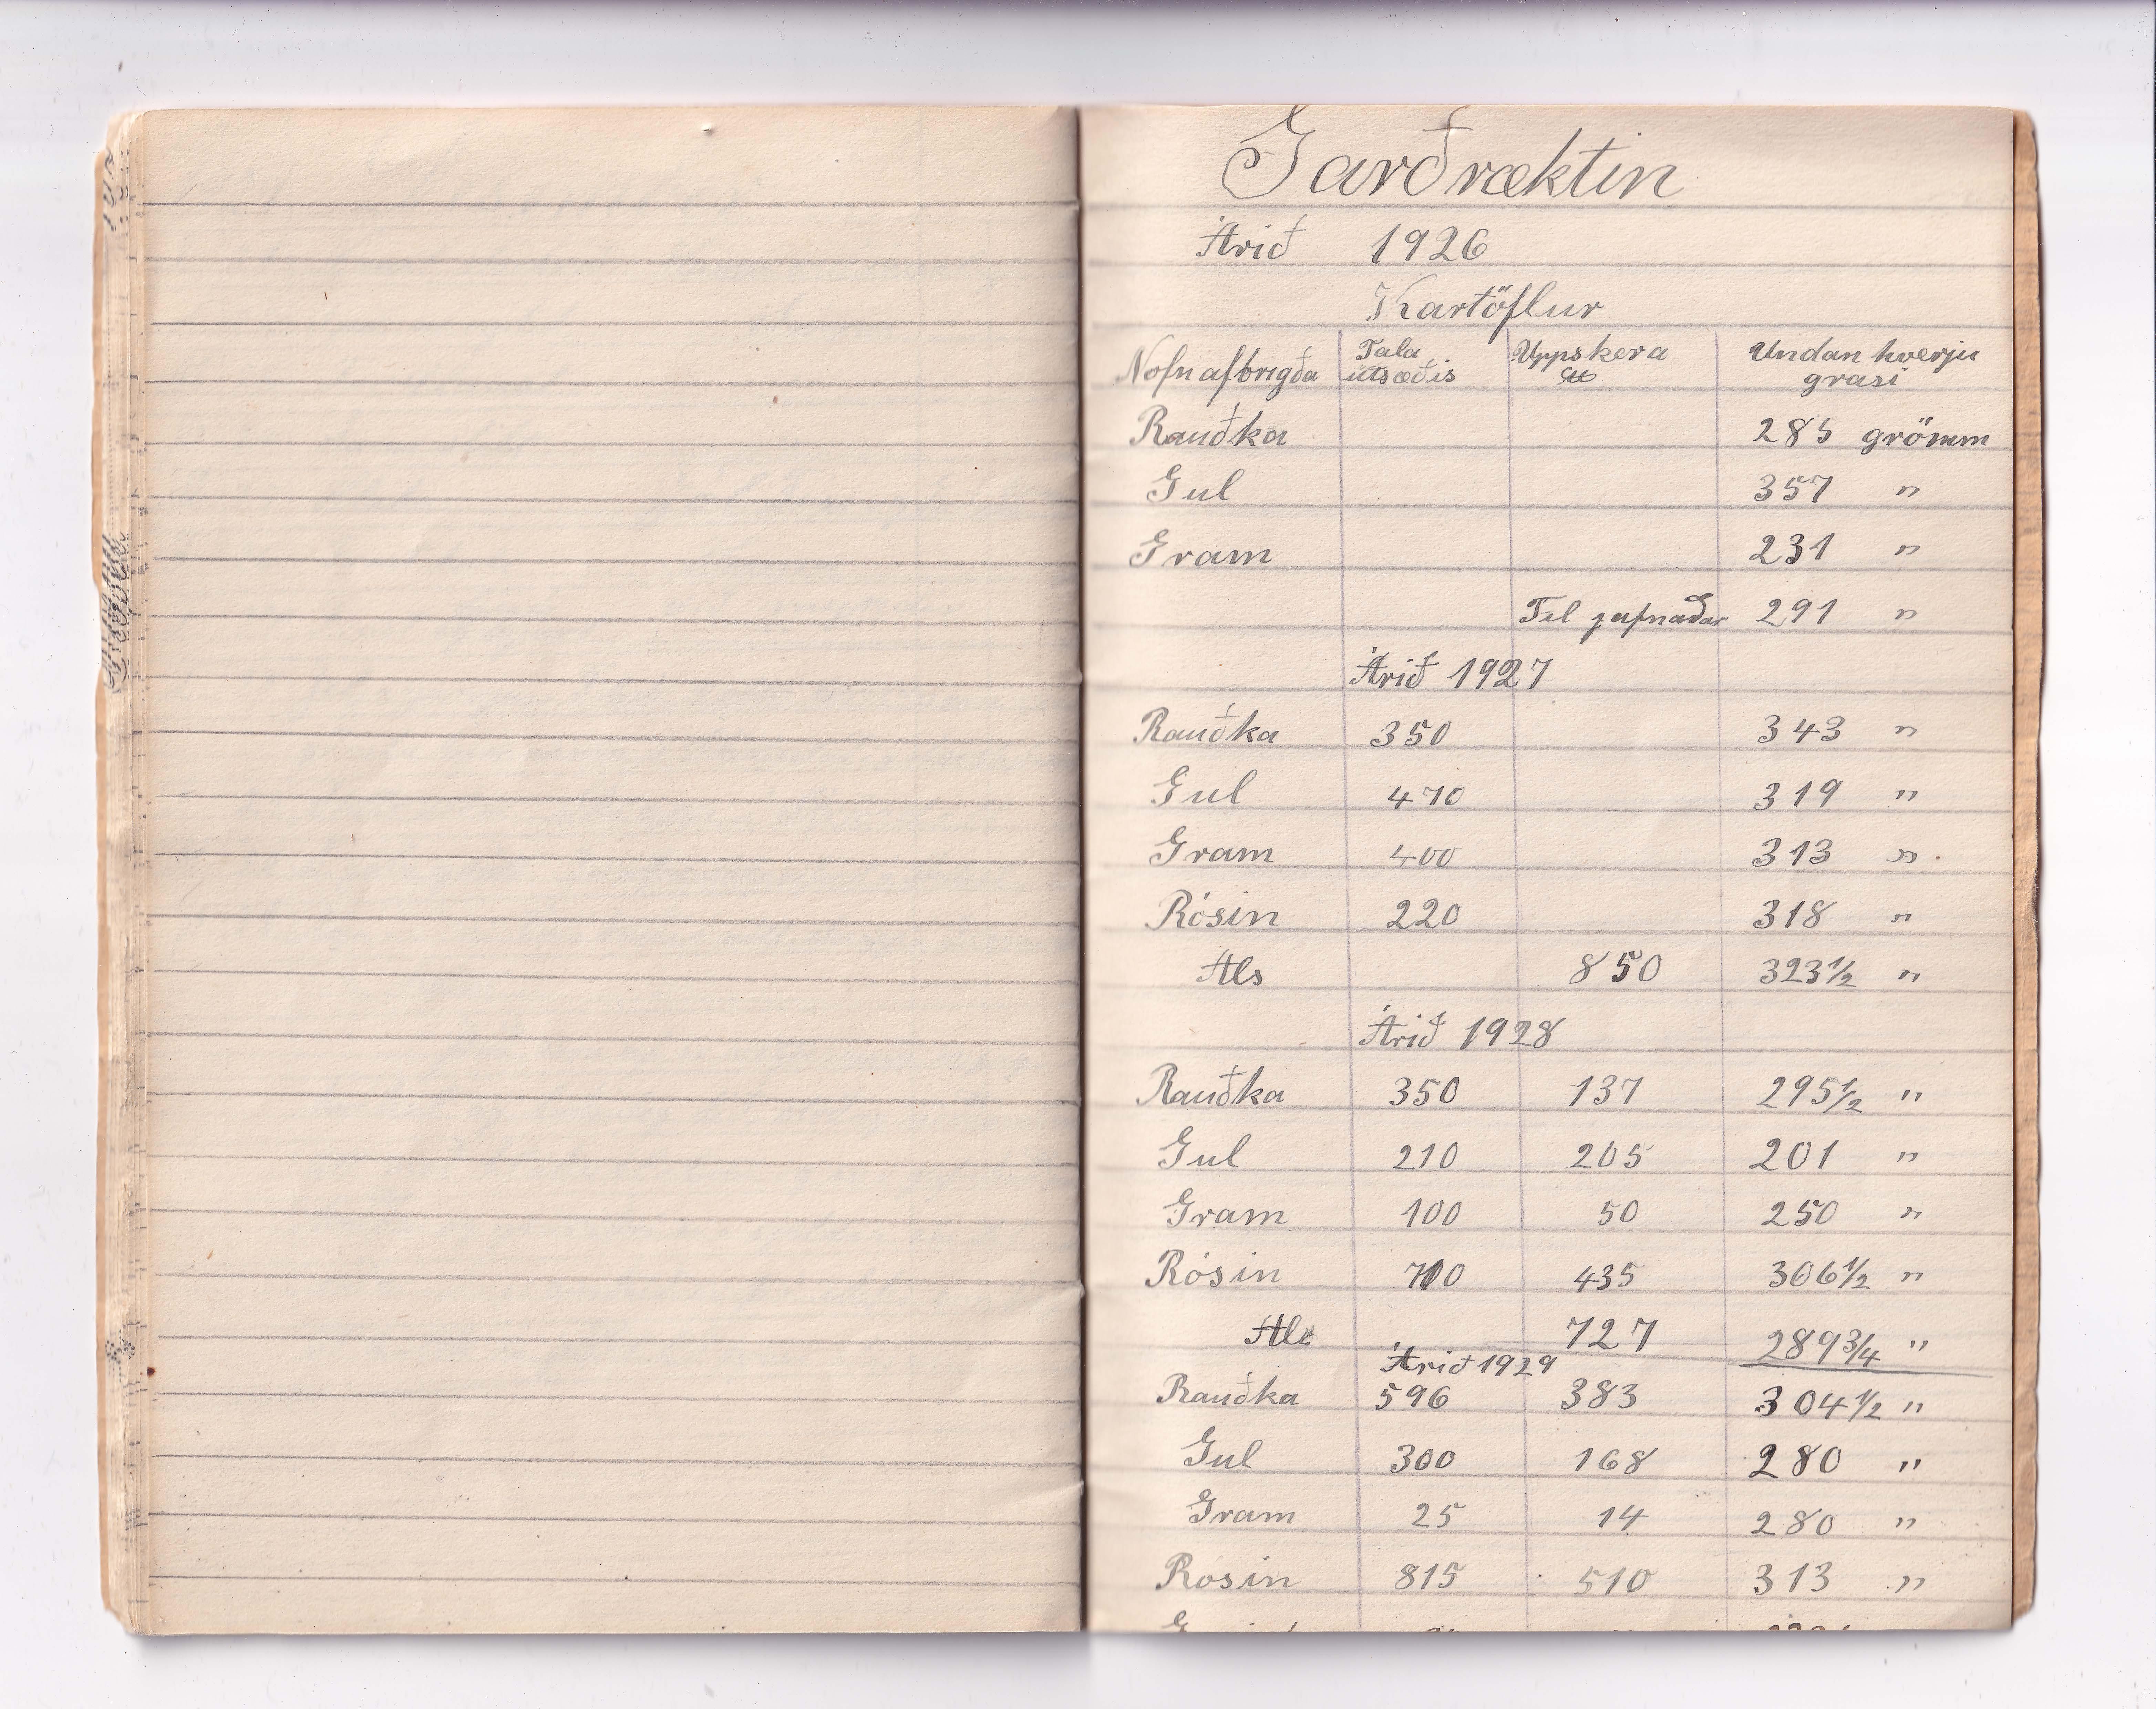 Garðræktin
Árið 1926
Kartöflur
Nöfn afbrigða Tala útsæðis Uppskera ℔ Undan hverju grasi
Rauðka 285 grömm
Gul 357 "
Gram 231 "
Til jafnaðar 291 "
Árið 1927
Rauðka 350 343 "
Gul 470 319 "
Gram 400 313 "
Rósin 220 318 "
Als 850 323 1/2 "
Árið 1928
Rauðka 350 137 295 1/2 "
Gul 210 205 201 "
Gram 100 50 250 "
Rósin 710 435 306 1/2 "
Als 727 289 3/4 "
Árið 1929
Rauðka 596 383 304 1/2 "
Gul 300 168 280 "
Gram 25 14 280 "
Rósin 815 510 313 "